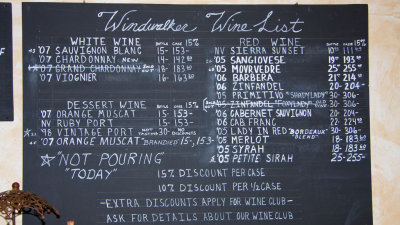 Windwalker Wine List
WHITE WINE BOTTLE CASE 15%
'07 SAUVIGNON BLANC 15- 153-
'07 CHARDONNAY NEW 14- 142.80
'07 GRAND CHARDONNAY 18- 183.60
'07 VIOGNIER 16- 163.20
DESSERT WINE BOTTLE CASE 15%
'07 ORANGE MUSCAT 15- 153-
NV RUBY PORT 15- 153-
'98 VINTAGE PORT NOT TASTING 30- NO DISCOUNTS
'07 ORANGE MUSCAT "BRANDIED" 15- 153-
*"NOT POURING"
"TODAY"
RED WINE BOTTLE CASE 15%
NV SIERRA SUNSET
'05 SANGIOVESE 19-
'05 MOURVEDRE 25-
'06 BARBERA 21-
'06 ZINFANDEL 20- 204-
'05 PRIMITIVO 30- 306-
'05 ZINFANDEL 30- 306-
'06 CABERNET SAUVIGNON 20- 204-
'06 CAB FRANC 22-
'05 LADY IN RED "BORDEAUX BLEND" 30- 306-
'05 MERLOT 18- 183.60
'05 SYRAH 18- 183.60
'05 PETITE SIRAH 25- 255-
15% DISCOUNT PER CASE
10% DISCOUNT PER ½ CASE
-EXTRA DISCOUNTS APPLY FOR WINE CLUB-
ASK FOR DETAILS ABOUT OUR WINE CLUB